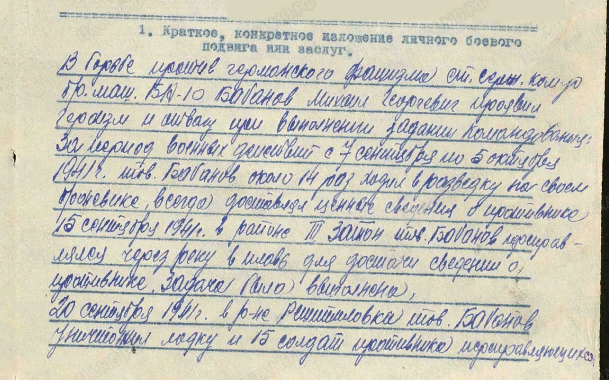 1. Краткое, конкретное изложение личного боевого
подвига или заслуг.
В борьбе против германского фашизма ст. серж. ком-р
бр. маш. БА-10 Бабанов Михаил Георгиевич проявил
героизм и отвагу при выполнении задании командования:
За период военных действий с 7 сентября по 5 октября
1941г. тов. Бабанов около 14 раз ходил в разведку на своем
броневике, всегда доставлял ценные сведения о противнике
15 сентября 1941г. в районе тов. Бабанов переправ-
лялся через реку в плавь для достачи сведений о
противнике, задача была выполнена,
20 сентября 1941г. в р-не тов. Бабанов
уничтожил лодку и 15 солдат противника переправляющихся